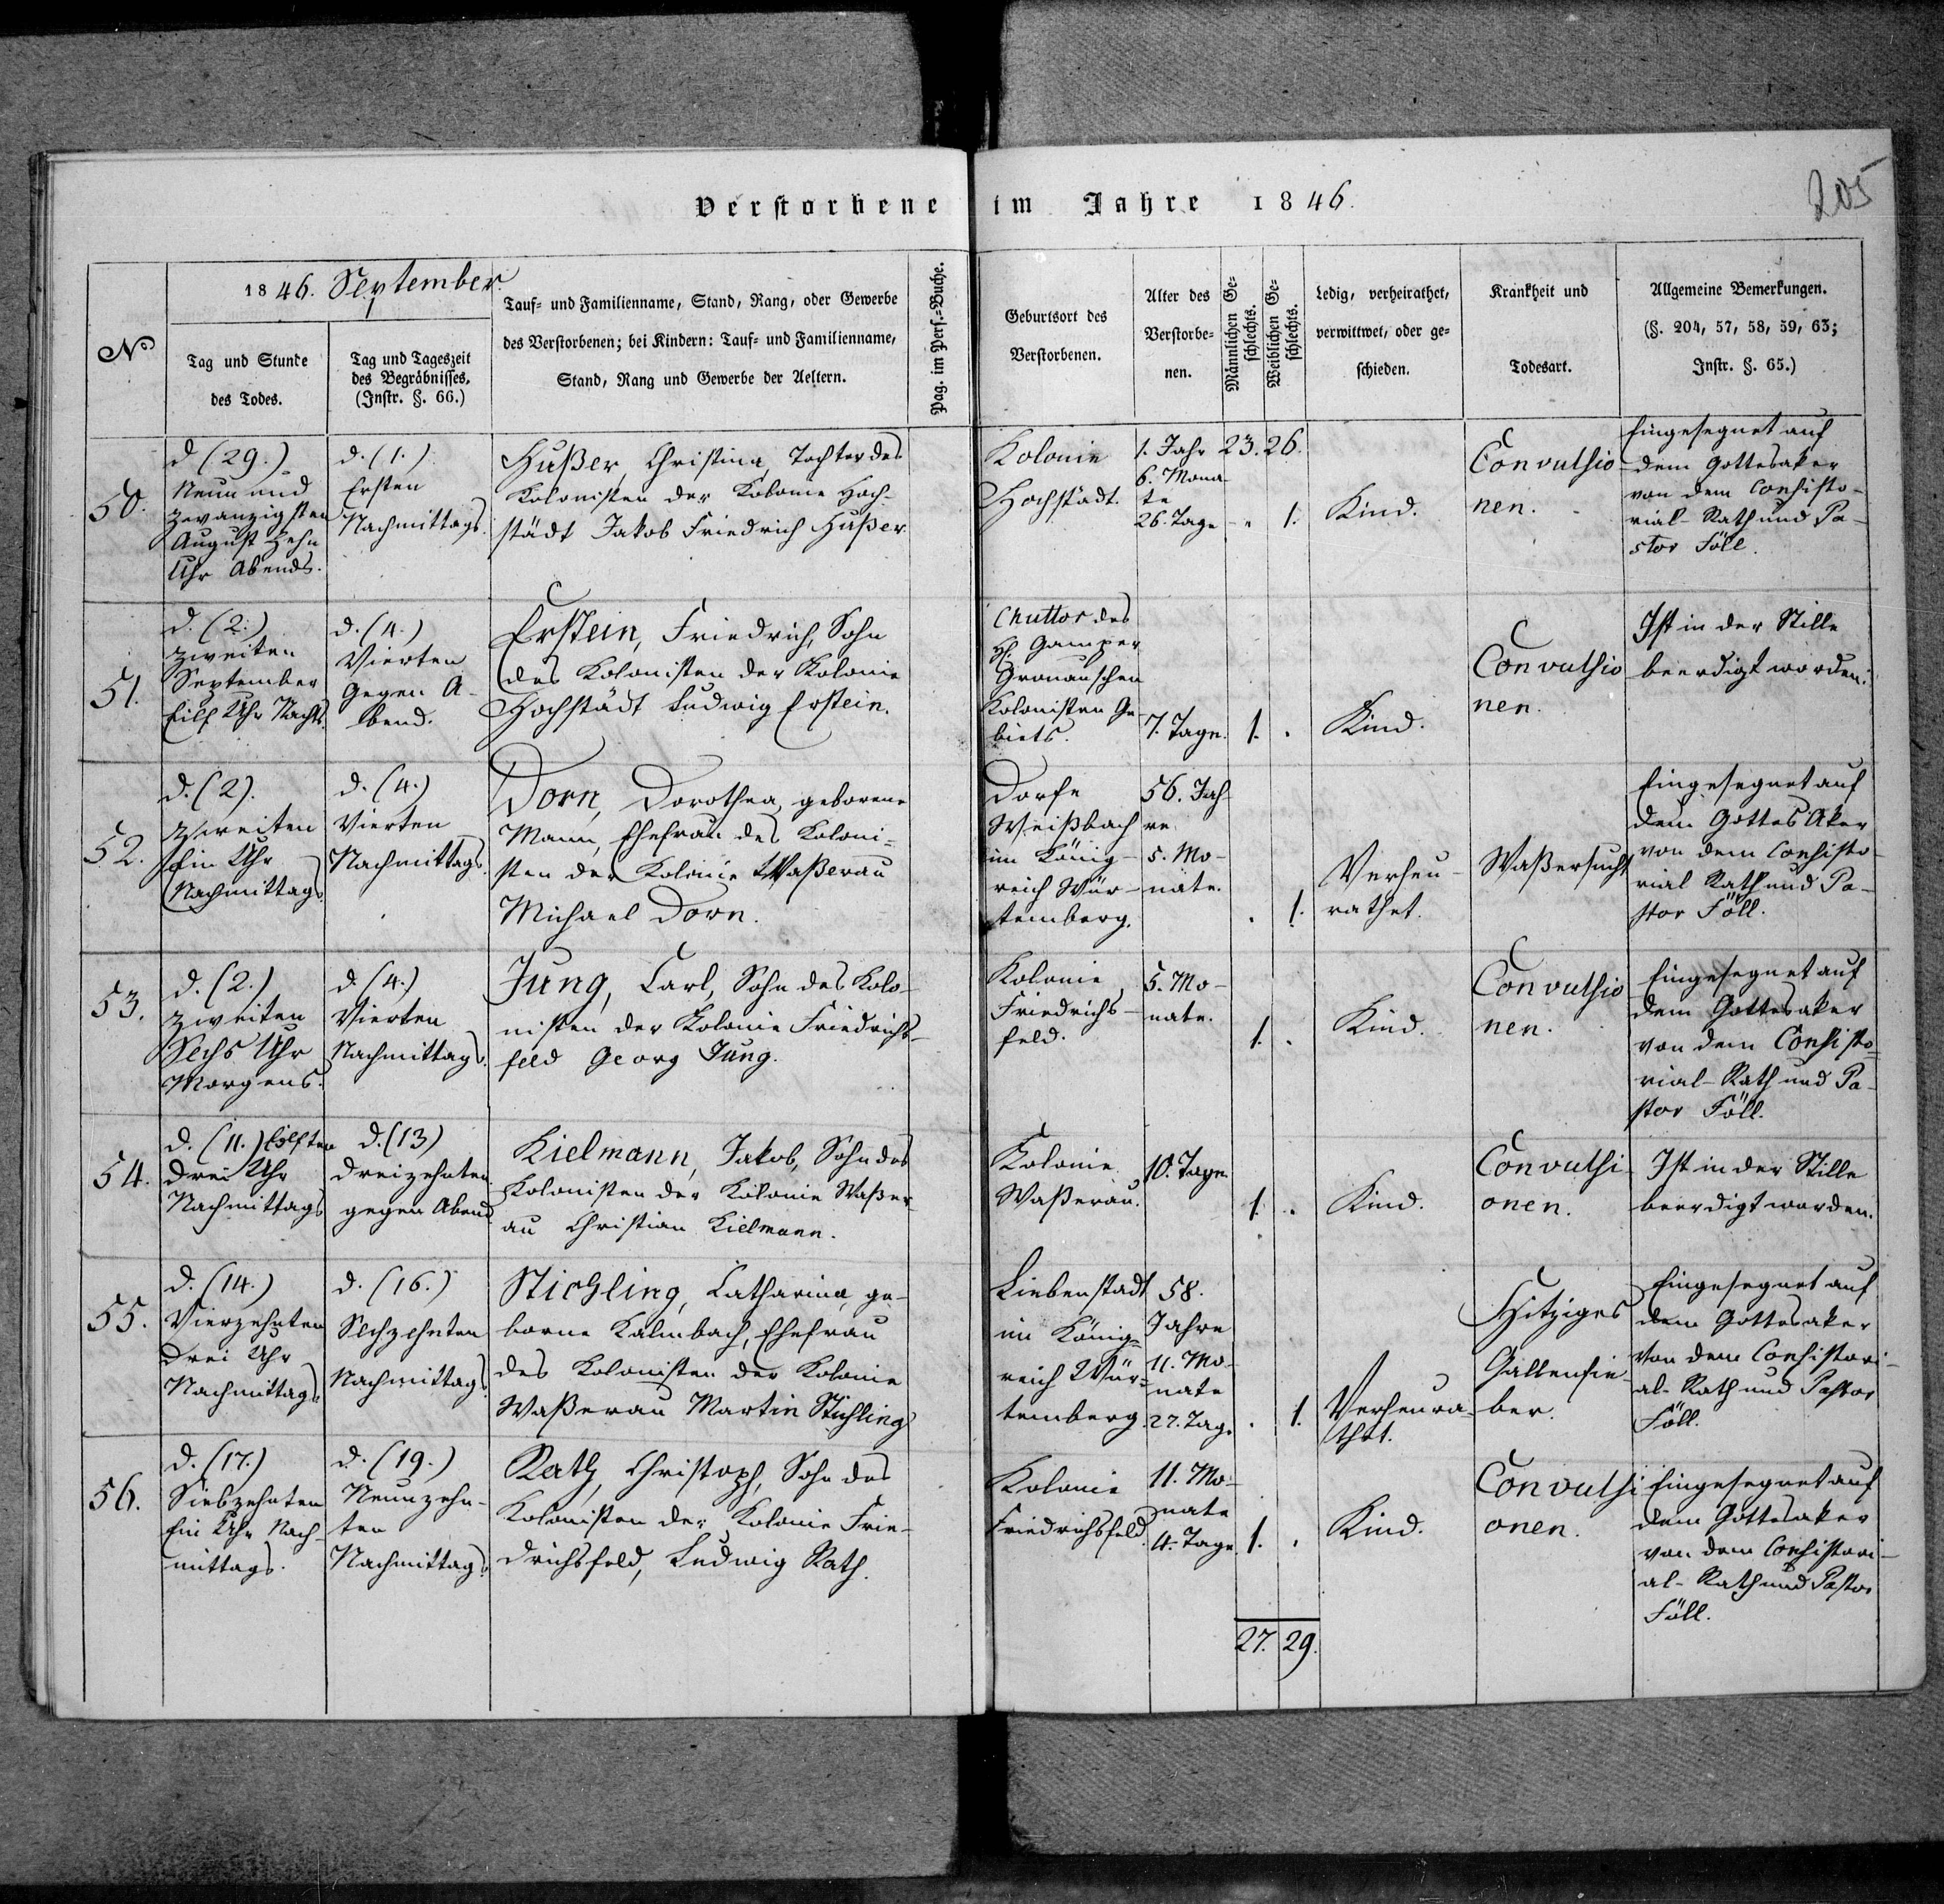 205
Verstorbene im Jahre 1846.
N°
1846. September.
Tag und Stunde
des Todes.
Tag und Tageszeit
des Begräbnisses.
(Instr. §. 66.)
Tauf- und Familienname, Stand, Rang, oder Gewerbe
des Verstorbenen; bei Kindern: Tauf- und Familienname,
Stand, Rang und Gewerbe der Aeltern.
Pag. im Pers.-Buche.
Geburtsort des
Verstorbenen.
Alter des
Verstorbe-
nen.
Männlichen Ge-
schlechts.
Weiblichen Ge-
schlechts.
Ledig, verheirathet,
verwittwet, oder ge-
schieden.
Krankheit und
Todesart.
Allgemeine Bemerkungen.
(§. 204, 57, 58, 59, 63;
Instr. §. 65.)
50.
d (29.)
Neun und
zwanzigsten
August Zehn
Uhr Abends.
d. (1.)
Ersten
Nachmittags.
Hußer, Christina, Tochter des
Kolonisten der Kolonie Hoch-
städt Jakob Friedrich Hußer.
Kolonie
Hochstädt.
1. Jahr
6. Mona-
te
26. Tage
23. 26.
1.
Kind.
Convulsio
nen.
Eingesegnet auf
dem Gottesaker
von dem Consisto-
rial-Rath und Pa-
stor Föll.
51.
d. (2.)
Zweiten
September
Eilf Uhr Nachts.
d. (4.)
Vierten
Gegen A-
bend.
Erstein, Friedrich, Sohn
des Kolonisten der Kolonie
Hochstädt Ludwig Erstein.
Chuttor des
H. Gamper
Kolonisten Ge
biets.
7. Tage.
1.
Kind.
Convulsio
nen.
Ist in der Stille
beerdigt worden.
52.
d. (2).
Zweiten
Ein Uhr
Nachmittags.
d. (4.)
Vierten
Nachmittags.
Dorn, Dorothea, geborene
Mann, Ehefrau des Koloni-
sten der Kolonie Waßerau
Michael Dorn.
Dorfe
Weißbach
im König-
reich Wür-
temberg.
56. Jah-
re
5. Mo-
nate.
1.
Verheu-
rathet.
Waßersucht
Eingesegnet auf
dem Gottes Aker
von dem Consisto-
rial Rath und Pa-
stor Föll.
53.
d. (2.)
Zweiten
Sechs Uhr
Morgens.
d. (4.)
Vierten
Nachmittags.
Jung, Carl, Sohn des Kolo-
nisten der Kolonie Friedrichs-
feld Georg Jung.
Kolonie
Friedrichs-
feld.
5. Mo-
nate.
1.
Kind.
Convulsio
nen.
Eingesegnet auf
dem Gottesaker
von dem Consisto-
rial-Rath und Pa-
stor Föll.
54.
d. (11.) Eilften
Drei Uhr
Nachmittags
d. (13)
Dreizehnten
gegen Abend
Kielmann, Jakob, Sohn des
Kolonisten der Kolonie Waßer
au Christian Kielmann.
Kolonie
Waßerau.
10. Tage
1.
Kind.
Convulsi
onen.
Ist in der Stille
beerdigt worden.
55.
d. (14.)
Vierzehnten
Drei Uhr
Nachmittags.
d. (16.)
Sechzehnten
Nachmittags.
Stichling, Catharina, ge-
borne Kalmbach, Ehefrau
des Kolonisten der Kolonie
Waßerau Martin Stichling
Liebenstadt
im König-
reich Wür-
temberg.
58.
Jahre
11. Mo-
nate
27. Tage
1.
Verheura-
thet.
Hitziges
Gallenfie-
ber.
Eingesegnet auf
dem Gottesaker
von dem Consistori-
al-Rath und Pastor
Föll.
56.
d. (17.)
Siebzehnten
Ein Uhr Nach-
mittags.
d. (19.)
Neunzehn-
ten
Nachmittags.
Rath, Christoph, Sohn des
Kolonisten der Kolonie Frie-
drichsfeld, Ludwig Rath.
Kolonie
Friedrichsfeld.
11. Mo-
nate
4. Tage
1.
Kind.
Convulsi
onen.
Eingesegnet auf
dem Gottesaker
von dem Consistori-
al-Rath und Pastor
Föll.
27. 29.